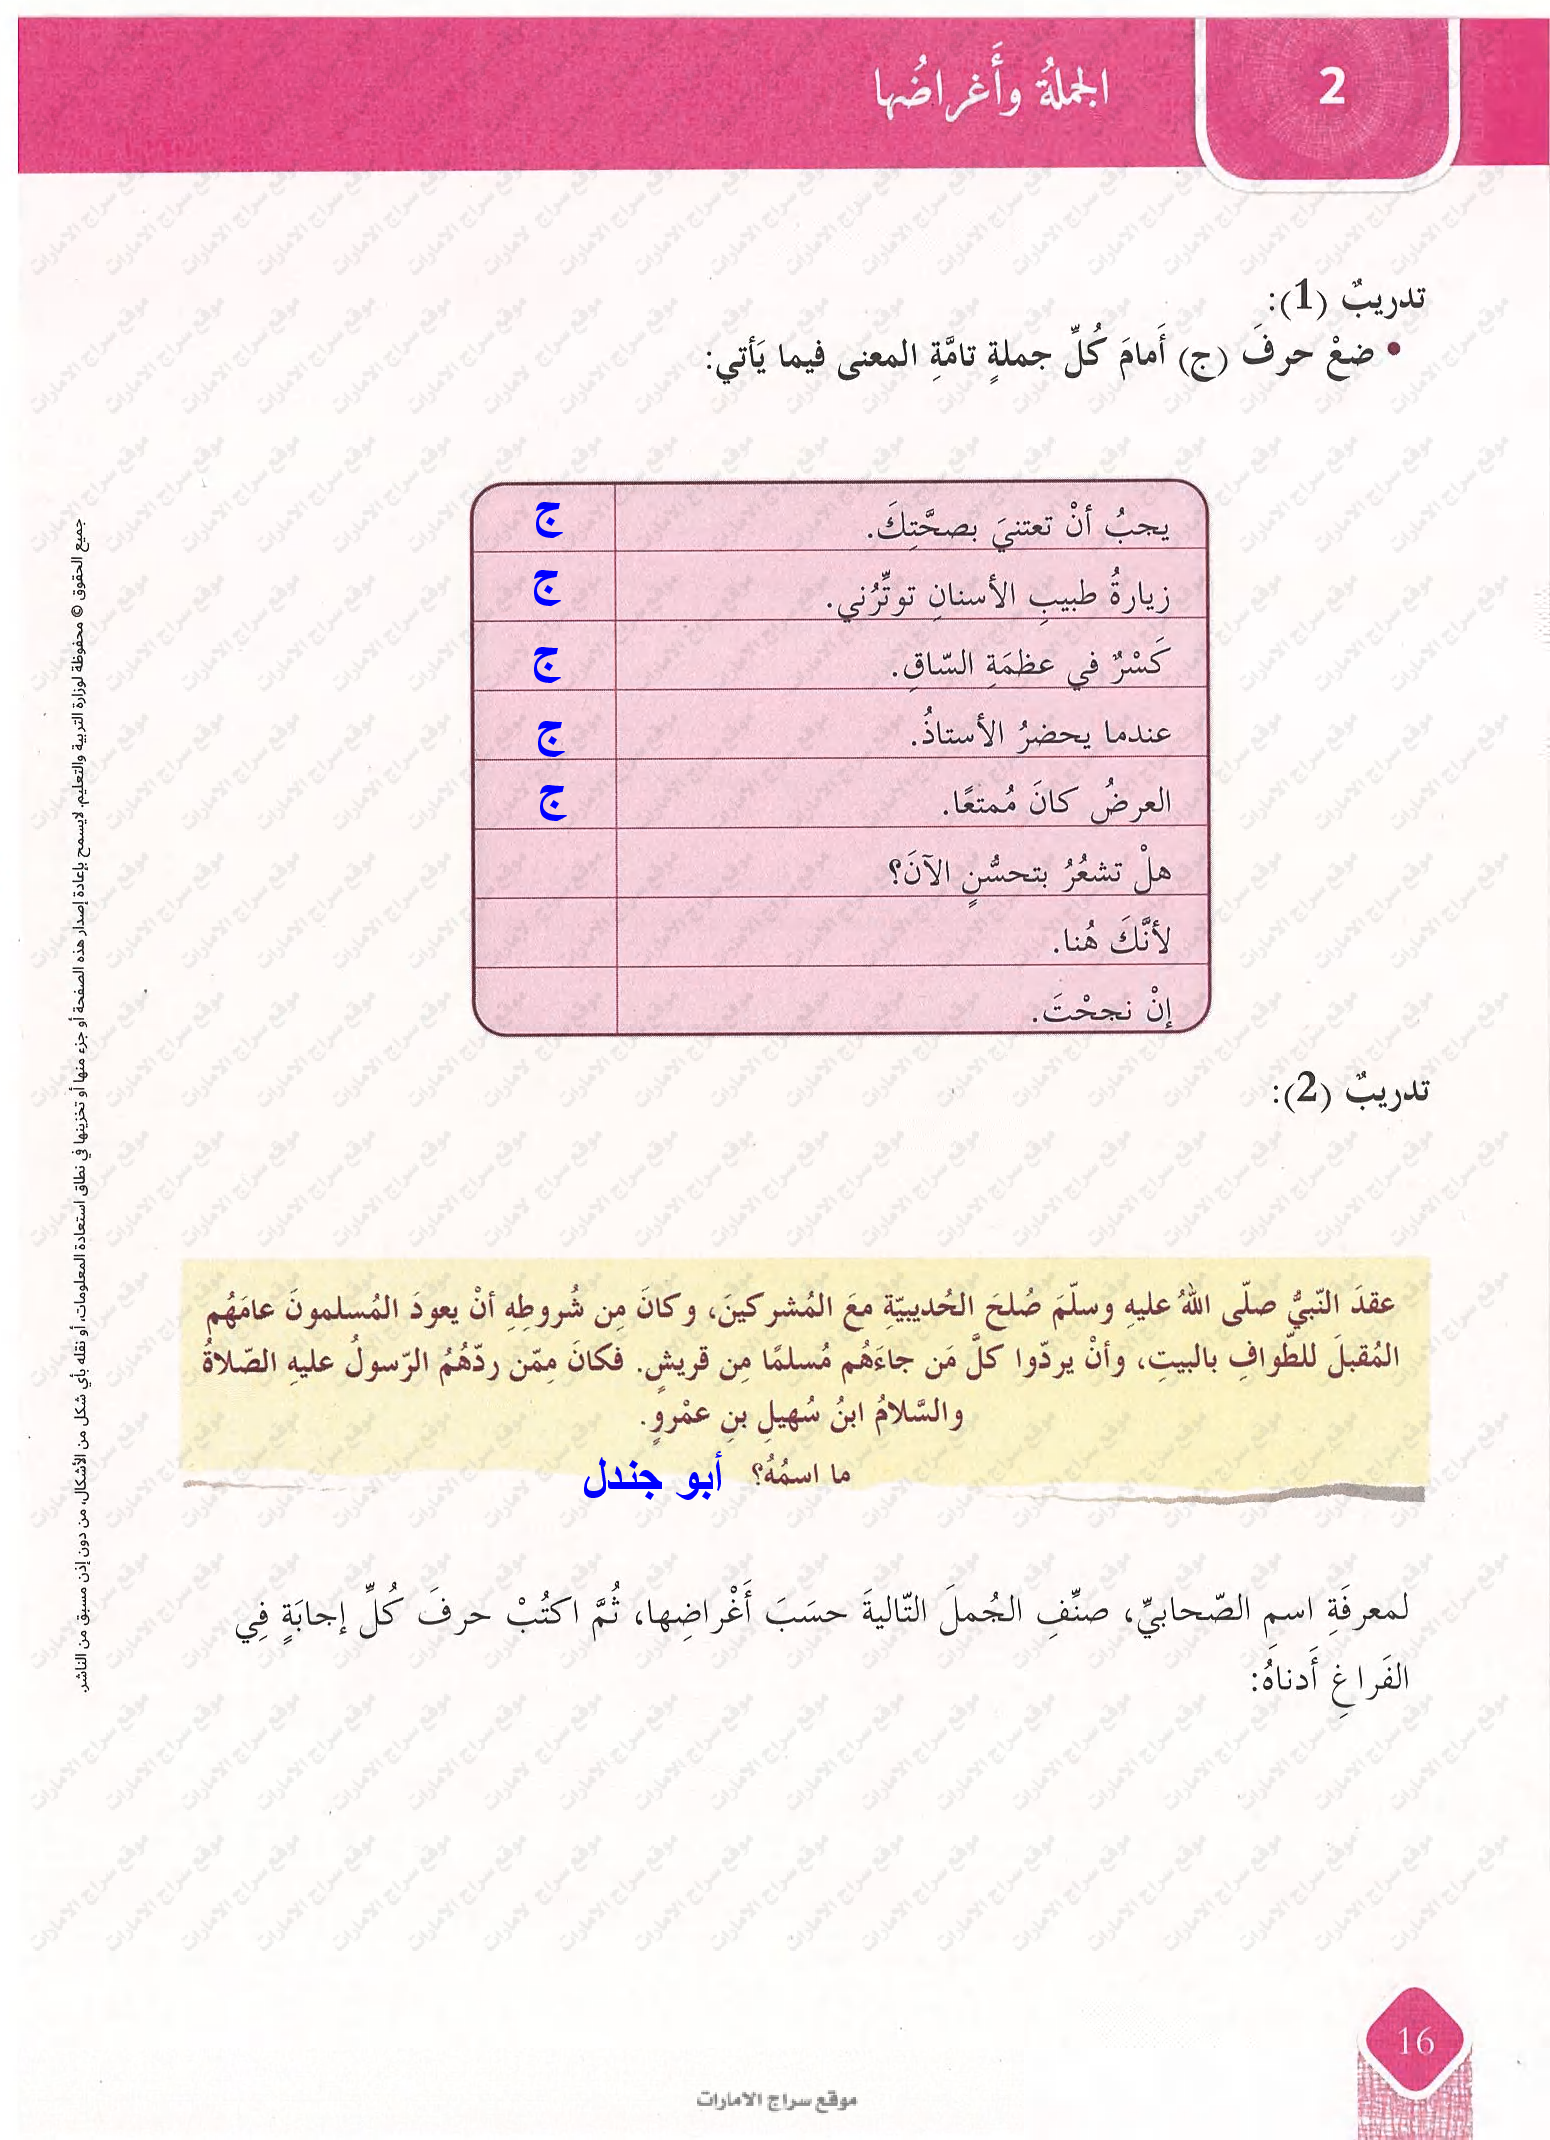 2
الجملةُ وأَغراضُها
تدريبٌ (1):
• ضعْ حرفَ (ج) أَمامَ كُلِّ جملةٍ تامَّةِ المعنى فيما يَأتي:
يجبُ أنْ تعتنيَ بصحَّتِكَ. ج
زيارةُ طبيبِ الأسنانِ توتِّرُني. ج
كَسْرٌ في عظمَةِ السّاقِ. ج
عندما يحضرُ الأستاذُ. ج
العرضُ كانَ مُمتعًا. ج
هلْ تشعُرُ بتحسُّنٍ الآنَ؟
لأنَّكَ هُنا.
إنْ نجحْتَ.
تدريبٌ (2):
عقدَ النّبيُّ صلّى اللهُ عليهِ وسلّمَ صُلحَ الحُديبيّةِ معَ المُشركينَ، وكانَ مِن شُروطِهِ أنْ يعودَ المُسلمونَ عامَهُم
المُقبلَ للطّوافِ بالبيتِ، وأنْ يردّوا كلَّ مَن جاءَهُم مُسلمًا مِن قريشٍ. فكانَ مِمّن ردّهُمُ الرّسولُ عليهِ الصّلاةُ
والسَّلامُ ابنُ سُهيلِ بنِ عمْروٍ.
ما اسمُهُ؟ أبو جندل
لمعرفَةِ اسمِ الصّحابيِّ، صنِّفِ الجُملَ التّاليةَ حسَبَ أَغْراضِها، ثُمَّ اكتُبْ حرفَ كُلِّ إجابَةٍ فِي
الفَراغِ أَدناهُ:
جميع الحقوق © محفوظة لوزارة التربية والتعليم. لايسمح بإعادة إصدار هذه الصفحة أو جزء منها أو تخزينها في نطاق استعادة المعلومات، أو نقله بأي شكل من الأشكال، من دون إذن مسبق من الناشر.
16
موقع سراج الامارات